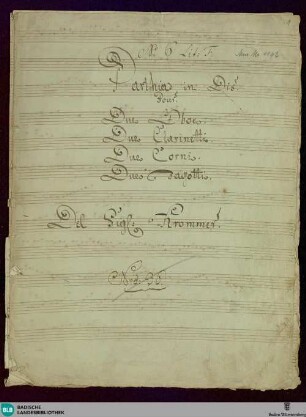 No. 6 Lit. F.
Mus. Ms.
Parthia in Dis
Due Oboe.
Due Clarinetti
Due Corni.
Due Fagotti.
Del Sigl: Krommer.
BLB BADISCHE
LANDESBIBLIOTHEK